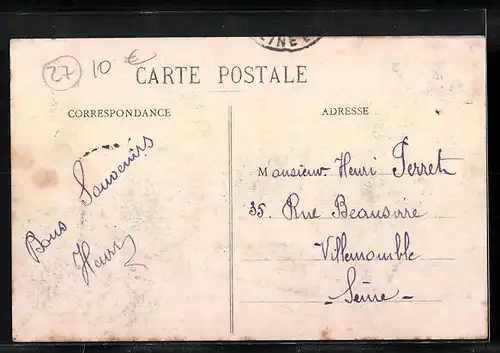 27 10 €
INE
CARTE POSTALE
CORRESPONDANCE
ADRESSE
Bons Souvenirs
Henri
Monsieur Henri Perret
35. Rue Beausire
Villemomble
- Seine -